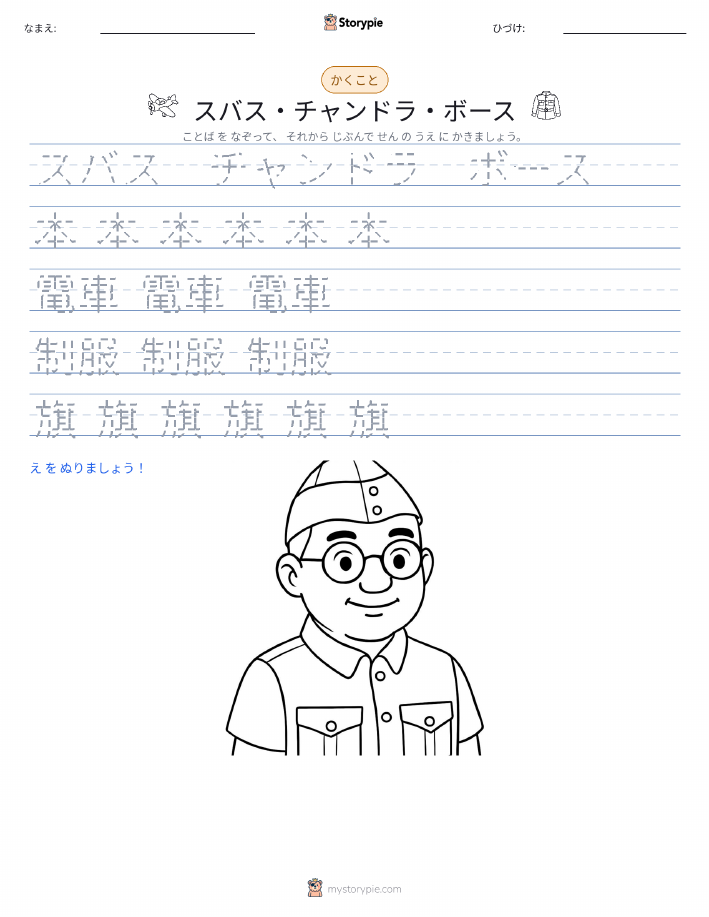 なまえ:
Storypie
ひづけ:
かくこと
スバス・チャンドラ・ボース
ことば を なぞって、 それから じぶんで せん の うえ に かきましょう。
スバス チャンドラ ボース
本 本 本 本 本 本
電車 電車 電車
制服 制服 制服
旗 旗 旗 旗 旗 旗
え を ぬりましょう！
mystorypie.com